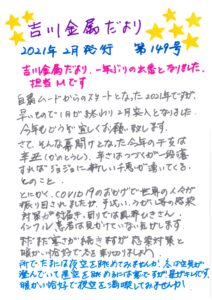 吉川金属だより
2021年2月発行 第149号
吉川金属だより、一年ぶりの出番となりました、
担当Mです
自粛ムードからのスタートとなった2021年ですが、
早いもので1月が終わり2月突入となりました。
今年もどうぞ宜しくお願い致します。
さて、そんな幕開けとなった今年の干支は
辛丑(かのとうし)、辛さはつづくが一段落
すればジョジョに新しい千恵が湧いてくる、
とのこと…
とにかく、COVID19のおかげで世界の人々が
振り回されましたが、手洗い、うがい等の感染
対策が功を奏し、周りでは風邪ひきさん、
インフル患者は見かけていない気がします
まだまだ寒さが続きますが感染対策と
暖かい恰好で冬を乗り切りましょう
所で、たまには夜空を眺めてみませんか?冬は空気が
澄んでいて星空を眺めるには寒いですが最よりです。
暖かい恰好で夜空を満喫してみませんか!